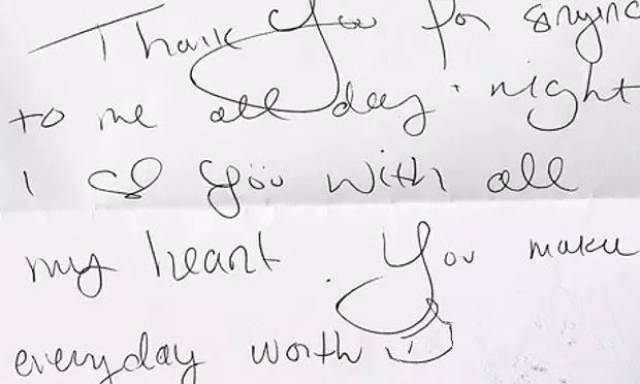 Thank You for singing
to me all day · night
I ♡ you with all
my heart. You make
everyday worth